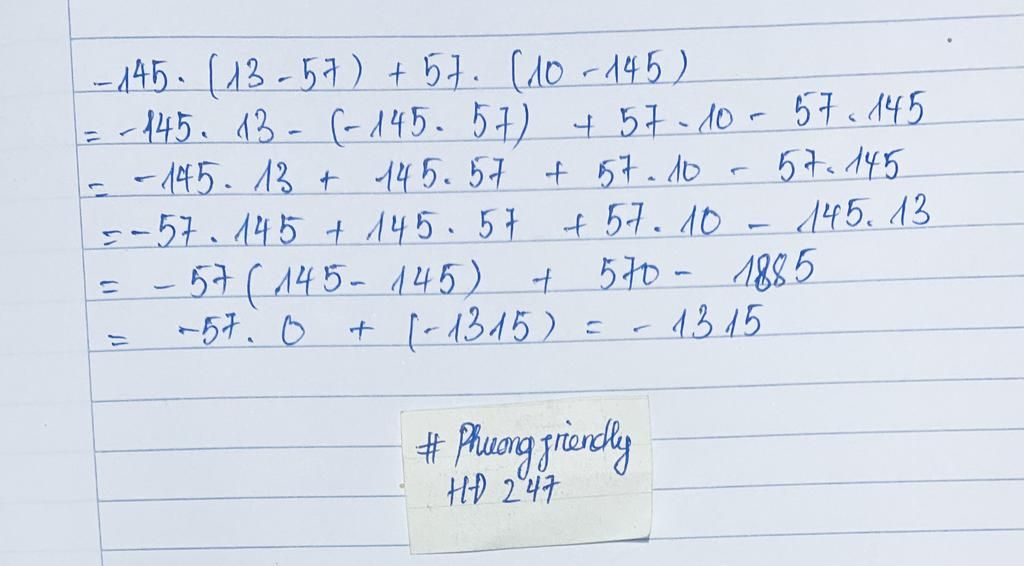 -145. (13 - 57) + 57. (10 - 145)
= -145. 13 - (-145. 57) + 57. 10 - 57. 145
= -145. 13 + 145. 57 + 57. 10 - 57. 145
= -57. 145 + 145. 57 + 57. 10 - 145. 13
= -57 (145 - 145) + 570 - 1885
= -57. 0 + (-1315) = -1315
# Phuong friendly
HĐ 247